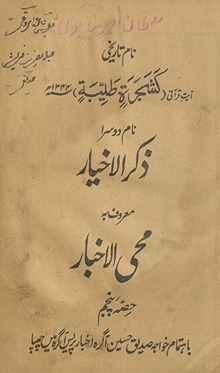 نام تاریخی
آیت قرآنی (كَشَجَرَةٍ طَيِّبَةٍ) سنہ ۱۳۴۴ھ
نام دوسرا
ذکر الاخیار
معروف بہ
محی الاخبار
حصہ پنجم
باہتمام خواجہ صدیق حسین آگرہ اخبار پریس آگرہ میں چھپا